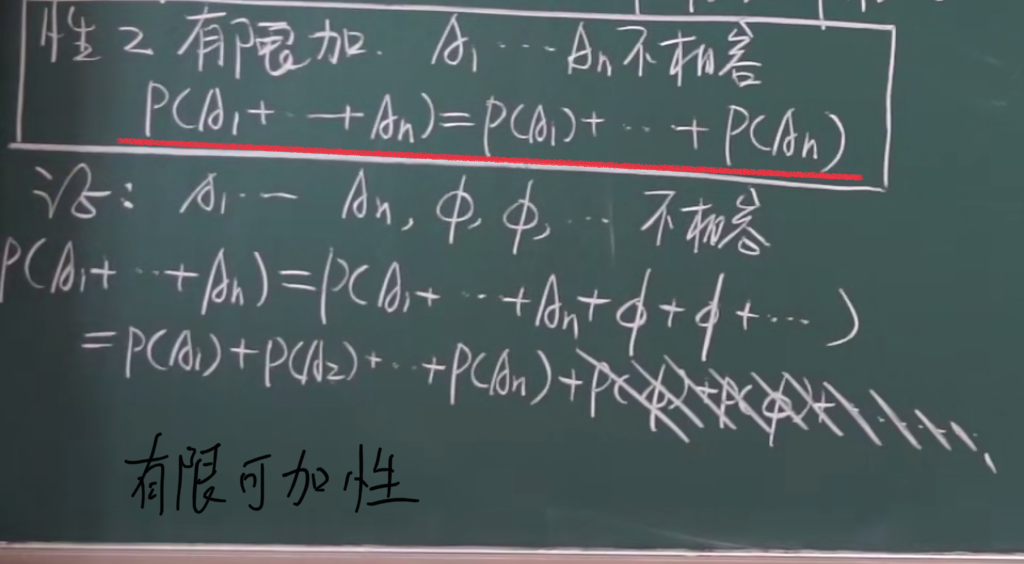 性2 有限加. A₁ ⋯ Aₙ不相容
P(A₁+⋯+Aₙ)=P(A₁)+⋯+P(Aₙ)
证: A₁⋯ Aₙ, ϕ, ϕ, ⋯ 不相容
P(A₁+⋯+Aₙ)=P(A₁+⋯+Aₙ+ϕ+ϕ+⋯)
=P(A₁)+P(A₂)+⋯+P(Aₙ)+P(ϕ)+P(ϕ)+⋯
有限可加性